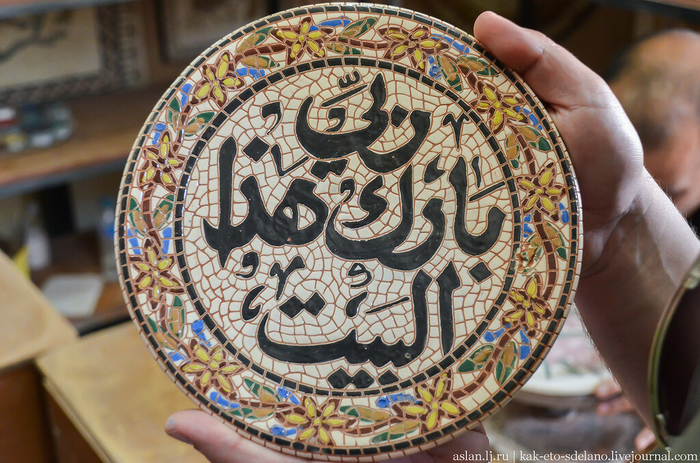 ربّي
بارك هذا
البيت
aslan.lj.ru | kak-eto-sdelano.livejournal.com